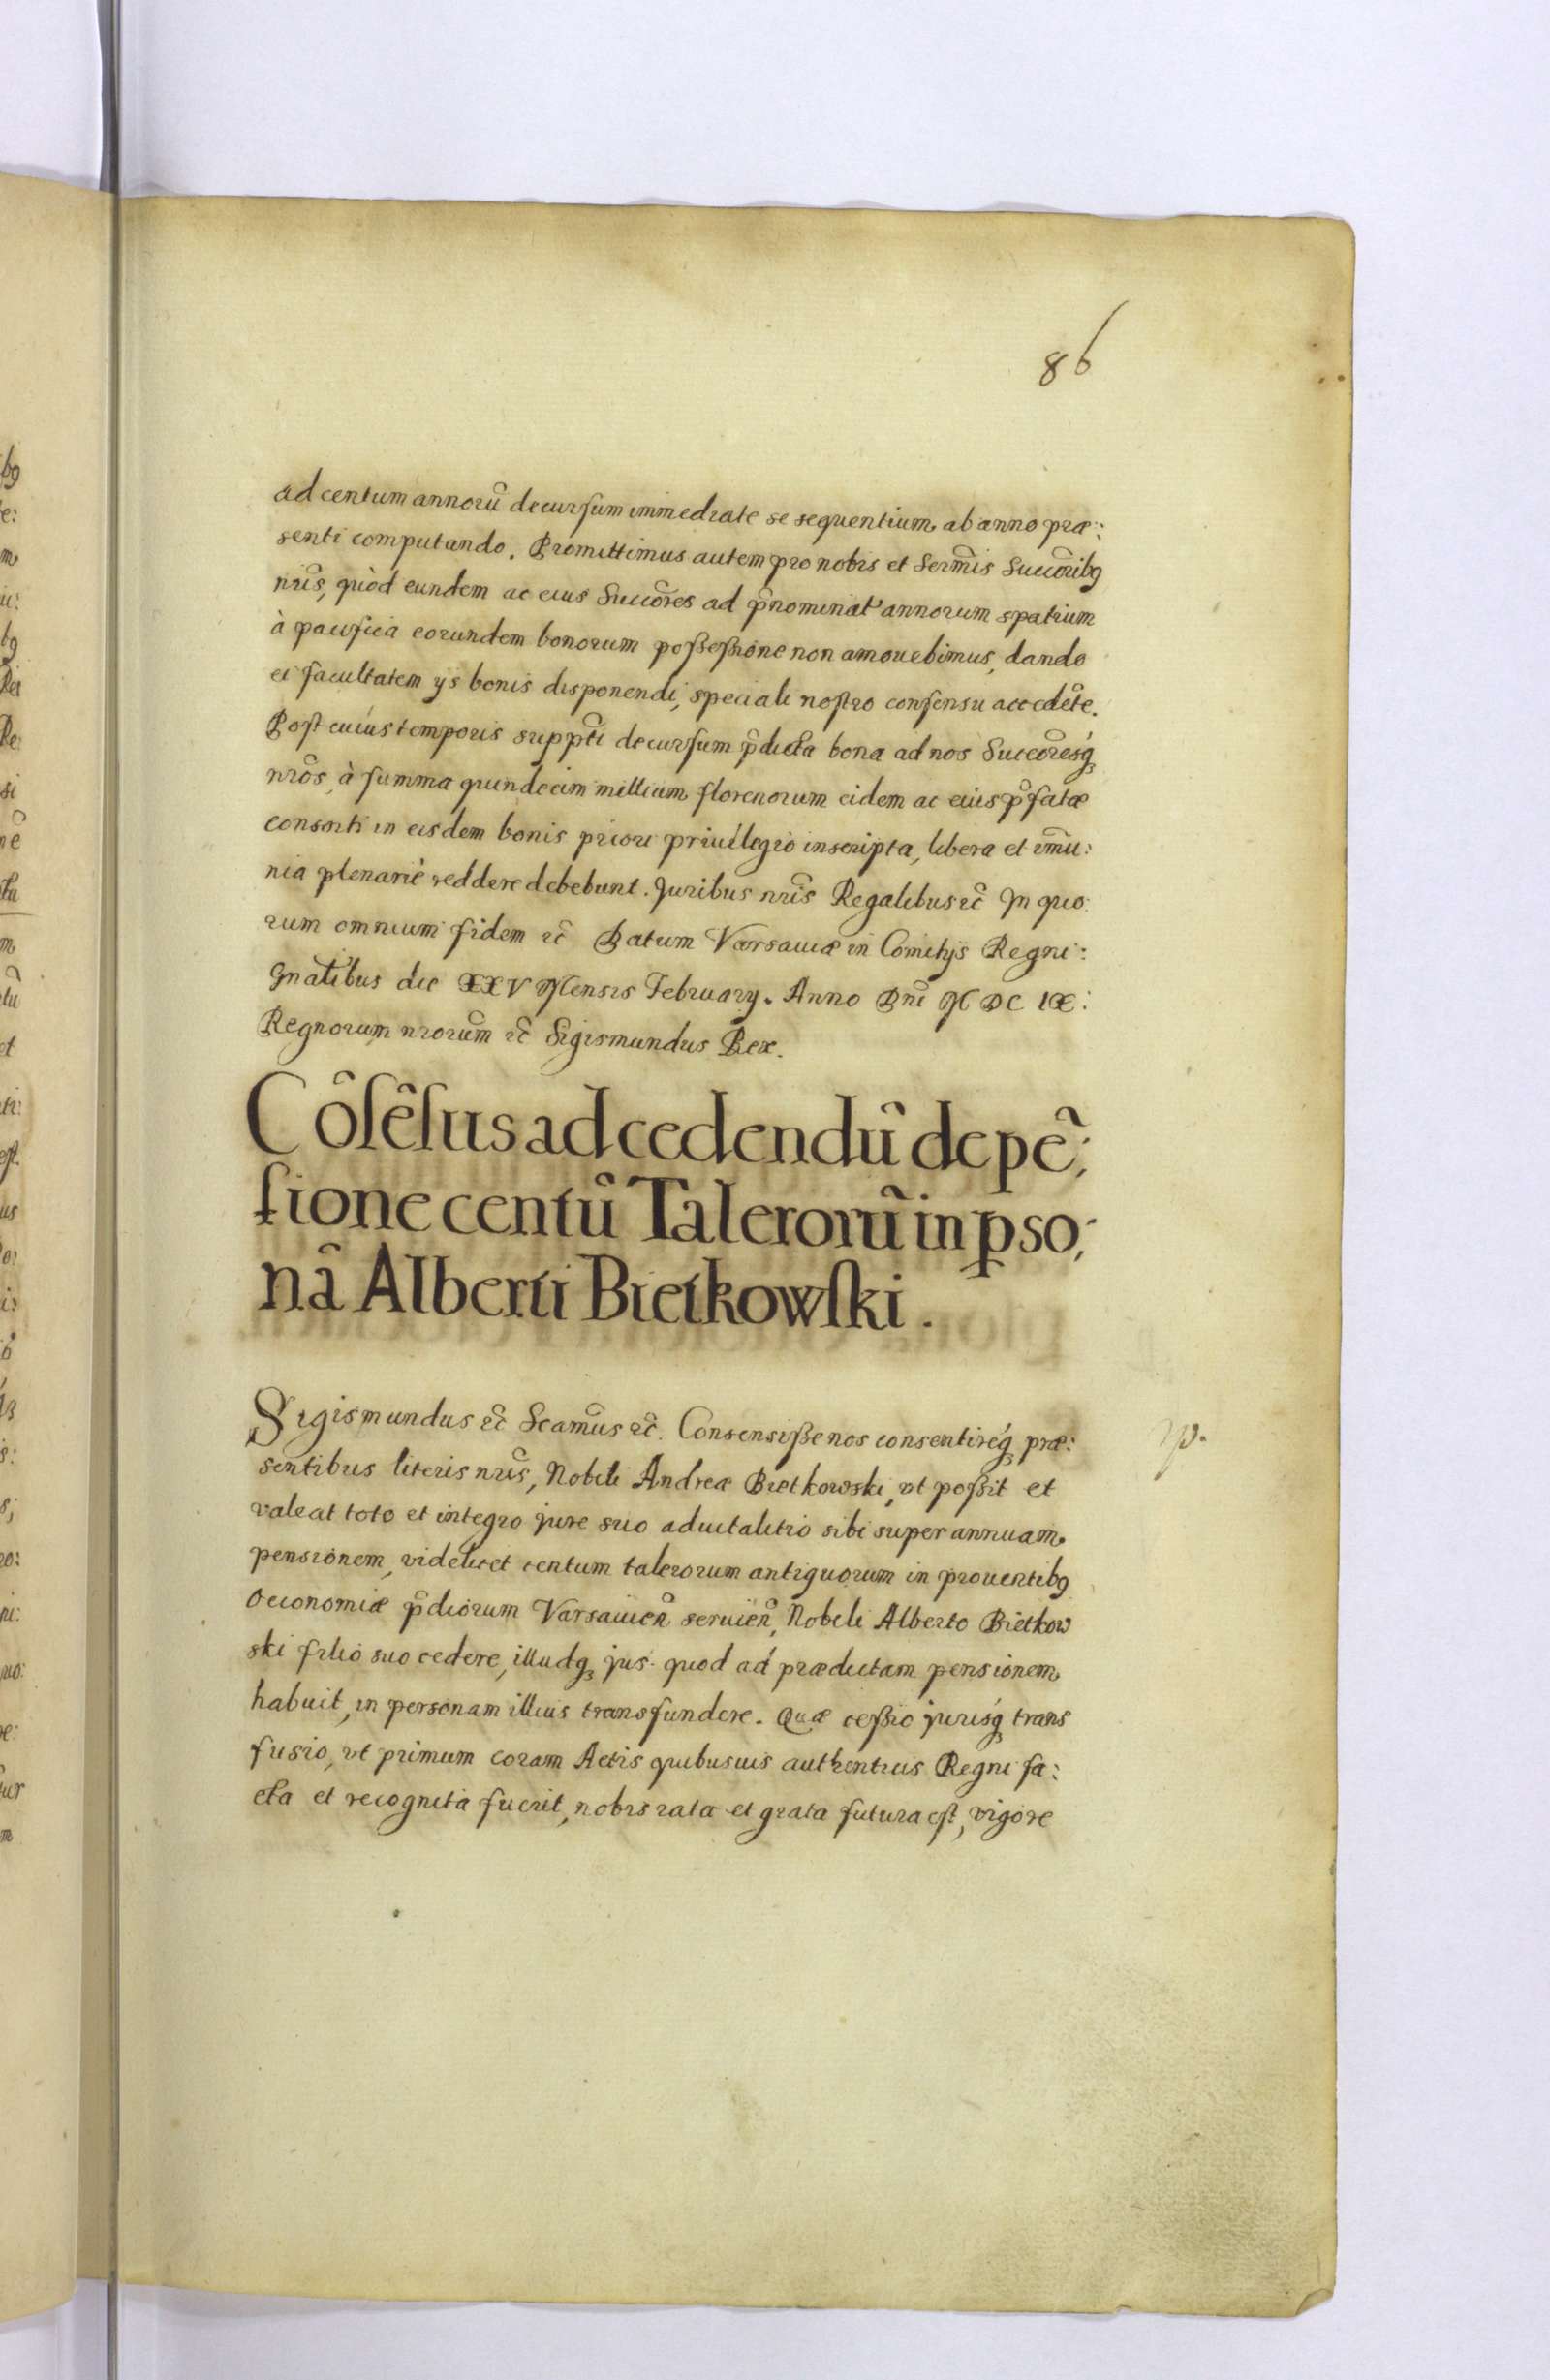 86
ad centum annorũ decursum immediate se sequentium ab anno præ:
senti computando. Promittimus autem pro nobis et Serm̃is Succõribꝫ
nrĩs, quòd eundem ac eius Succõres ad p̃nominat' annorum spatium
à pacifica eorundem bonorum possessione non amouebimus, dando
ei facultatem ijs bonis disponendi, speciali nostro consensu accedẽte.
Post cuius temporis supptĩ decursum p̃dicta bona ad nos Succõresqꝫ
nrõs, à summa quindecim millium florenorum eidem ac eius p̃fatæ
consorti in eisdem bonis priori priuilegio inscripta, libera et im̃u:
nia plenariè reddere debebunt. Juribus nrĩs Regalibus ec̃ In quo:
rum omnium fidem ec̃ Datum Varsauiæ in Comitijs Regni:
Gnãlibus die XXV Mensis February. Anno Dnĩ M DC IX:
Regnorum nrorũm ec̃ Sigismundus Rex.
Cõsẽsus ad cedendũ de pẽ;
sione centũ Talerorũ in pso;
nã Alberti Bietkowski.
Sigismundus ec̃ Seam̃us ec̃. Consensisse nos consentireqꝫ præ:
sentibus literis nrĩs, Nobili Andreæ Bietkowski, vt possit et
valeat toto et integro jure suo aduitalitio sibi super annuam
pensionem, videlicet centum talerorum antiquorum in prouentibꝫ
Oeconomiæ p̃diorum Varsauieñ seruieñ, Nobili Alberto Bietkow
ski filio suo cedere, illudqꝫ jus quod ad prædictam pensionem
habuit, in personam illius transfundere. Quæ cessio jurisqꝫ trans
fusio, vt primum coram Actis quibusuis authenticis Regni fa:
cta et recognita fuerit, nobis rata et grata futura est, vigore